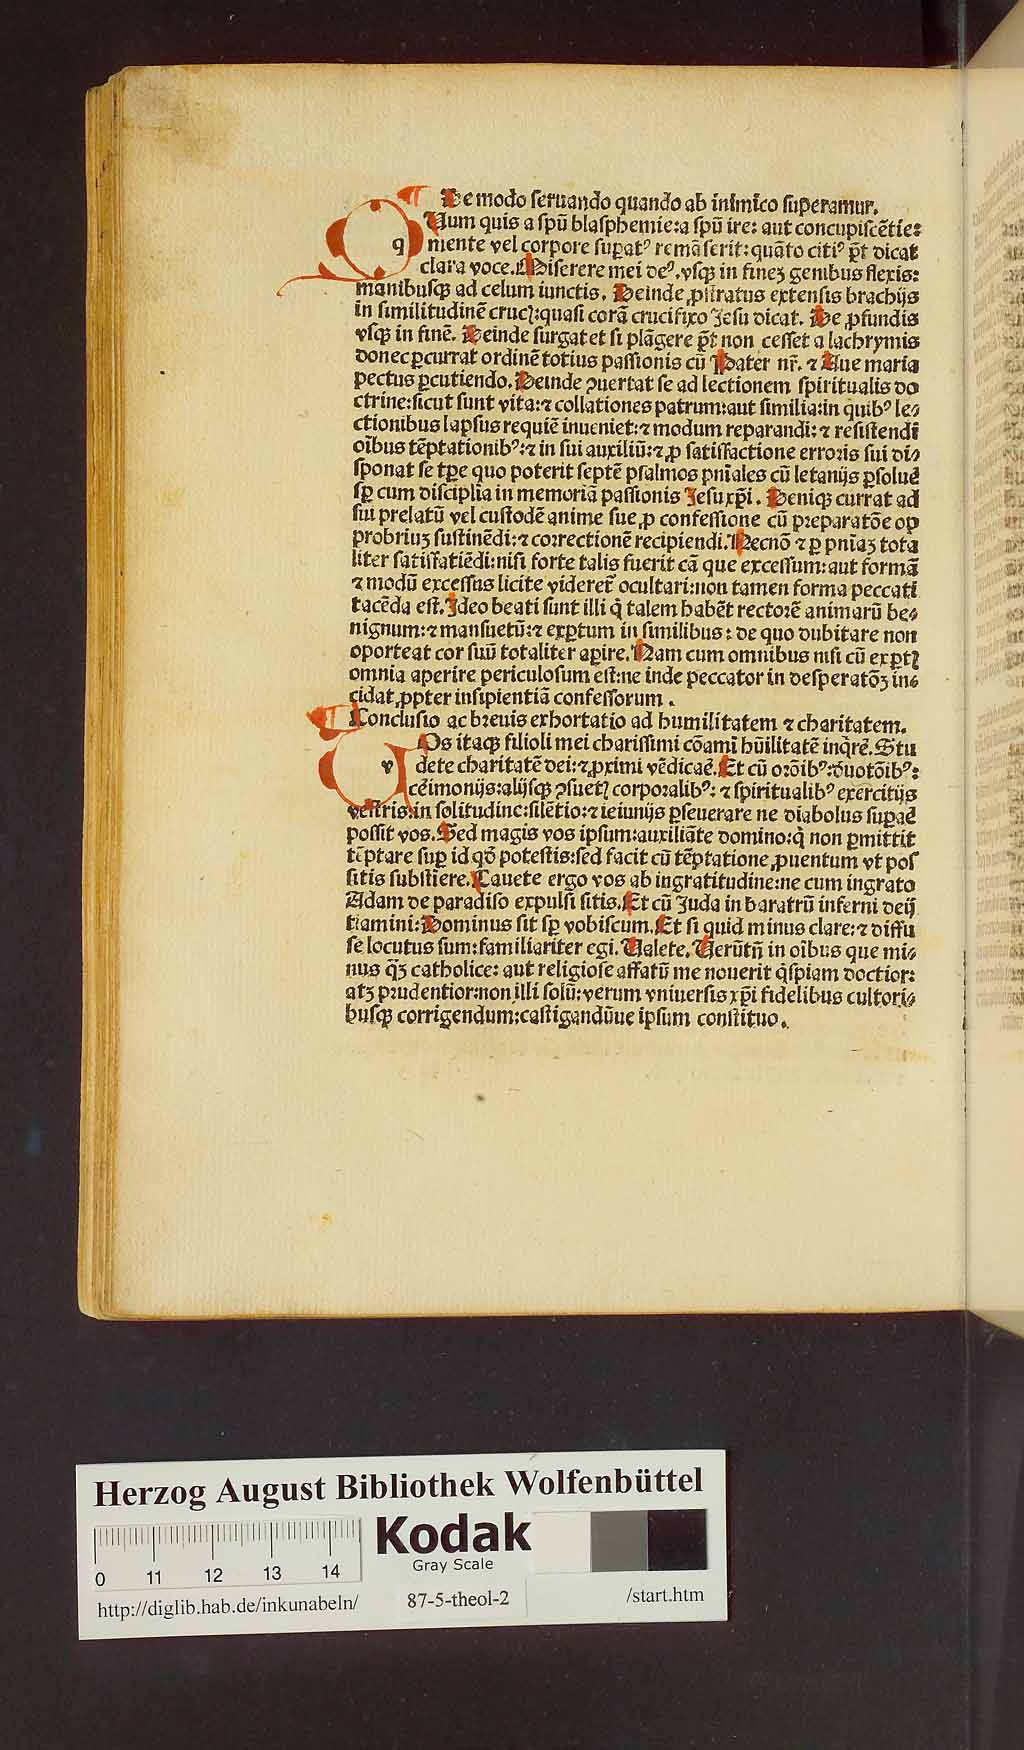 ¶ De modo seruando quando ab inimico superamur.
Qum quis a spū blasphemie:a spū ire: aut concupiscētie:
mente vel corpore supat⁹ remāserit:quāto citi⁹ p̄t dicat
clara voce. Miserere mei de⁹.vsqꝫ in fineꝫ genibus flexis:
manibusqꝫ ad celum iunctis. Deinde ꝓstratus extensis brachijs
in similitudinē cruc̄:quasi corā crucifixo Jesu dicat. De ꝓfundis
vsqꝫ in finē. Deinde surgat et si plāgere p̄t non cesset a lachrymis
donec ꝑcurrat ordinē totius passionis cū Pater nr̄. ⁊ Aue maria
pectus ꝑcutiendo. Deinde ꝯuertat se ad lectionem spiritualis do
ctrine:sicut sunt vita:⁊ collationes patrum:aut similia:in quib⁹ le⸗
ctionibus lapsus requiē inueniet:⁊ modum reparandi: ⁊ resistendi
oībus tēptationib⁹:⁊ in sui auxiliū:⁊ ꝓ satisfactione erroris sui di⸗
sponat se tꝑe quo poterit septē psalmos pn̄iales cū letanijs ꝑsoluē
sꝑ cum disciplīa in memoriā passionis Jesu xp̄i. Deniqꝫ currat ad
sui prelatū vel custodē anime sue ꝓ confessione cū preparatōe op
probriuꝫ sustinēdi:⁊ correctionē recipiendi. Necnō ⁊ ꝑ pn̄iaꝫ tota
liter satisfatiēdi:nisi forte talis fuerit cā que excessum:aut formā
⁊ modū excessus licite videret̄ ocultari:non tamen forma peccati
tacēda est. Ideo beati sunt illi q̄ talem habēt rectorē animarū be⸗
nignum:⁊ mansuetū:⁊ exꝑtum in similibus: de quo dubitare non
oporteat cor suū totaliter aꝑire. Nam cum omnibus nisi cū exꝑtꝭ
omnia aperire periculosum est:ne inde peccator in desperatōꝫ in⸗
cidat ꝓpter insipientiā confessorum.
¶ Conclusio ac breuis exhortatio ad humilitatem ⁊ charitatem.
VOs itaqꝫ filioli mei charissimi cōami hūilitatē inq̄rē. Stu
dete charitatē dei:⁊ ꝓximi vēdicaē. Et cū orōib⁹:deuotōib⁹:
cēimonijs:alijsqꝫ ꝯsuetꝭ corporalib⁹: ⁊ spiritualib⁹ exercitijs
vestris:in solitudine:silētio:⁊ ieiunijs ꝑseuerare ne diabolus suꝑaē
possit vos. Sed magis vos ipsum:auxiliāte domino:q̄ non ꝑmittit
tēptare suꝑ id qd̄ potestis:sed facit cū tēptatione ꝓuentum vt pos
sitis substiere. Cauete ergo vos ab ingratitudine:ne cum ingrato
Adam de paradiso expulsi sitis. Et cū Juda in baratrū inferni deij
tiamini: Dominus sit sꝑ vobiscum. Et si quid minus clare:⁊ diffu
se locutus sum:familiariter egi. Valete. Verūtn̄ in oībus que mi⸗
nus q̄ꝫ catholice: aut religiose affatū me nouerit q̄spiam doctior:
atꝫ prudentior:non illi solū:verum vniuersis xp̄i fidelibus cultori⸗
busqꝫ corrigendum:castigandūue ipsum constituo.
Herzog August Bibliothek Wolfenbüttel
Kodak
Gray Scale
0 11 12 13 14
http://diglib.hab.de/inkunabeln/ 87-5-theol-2 /start.htm